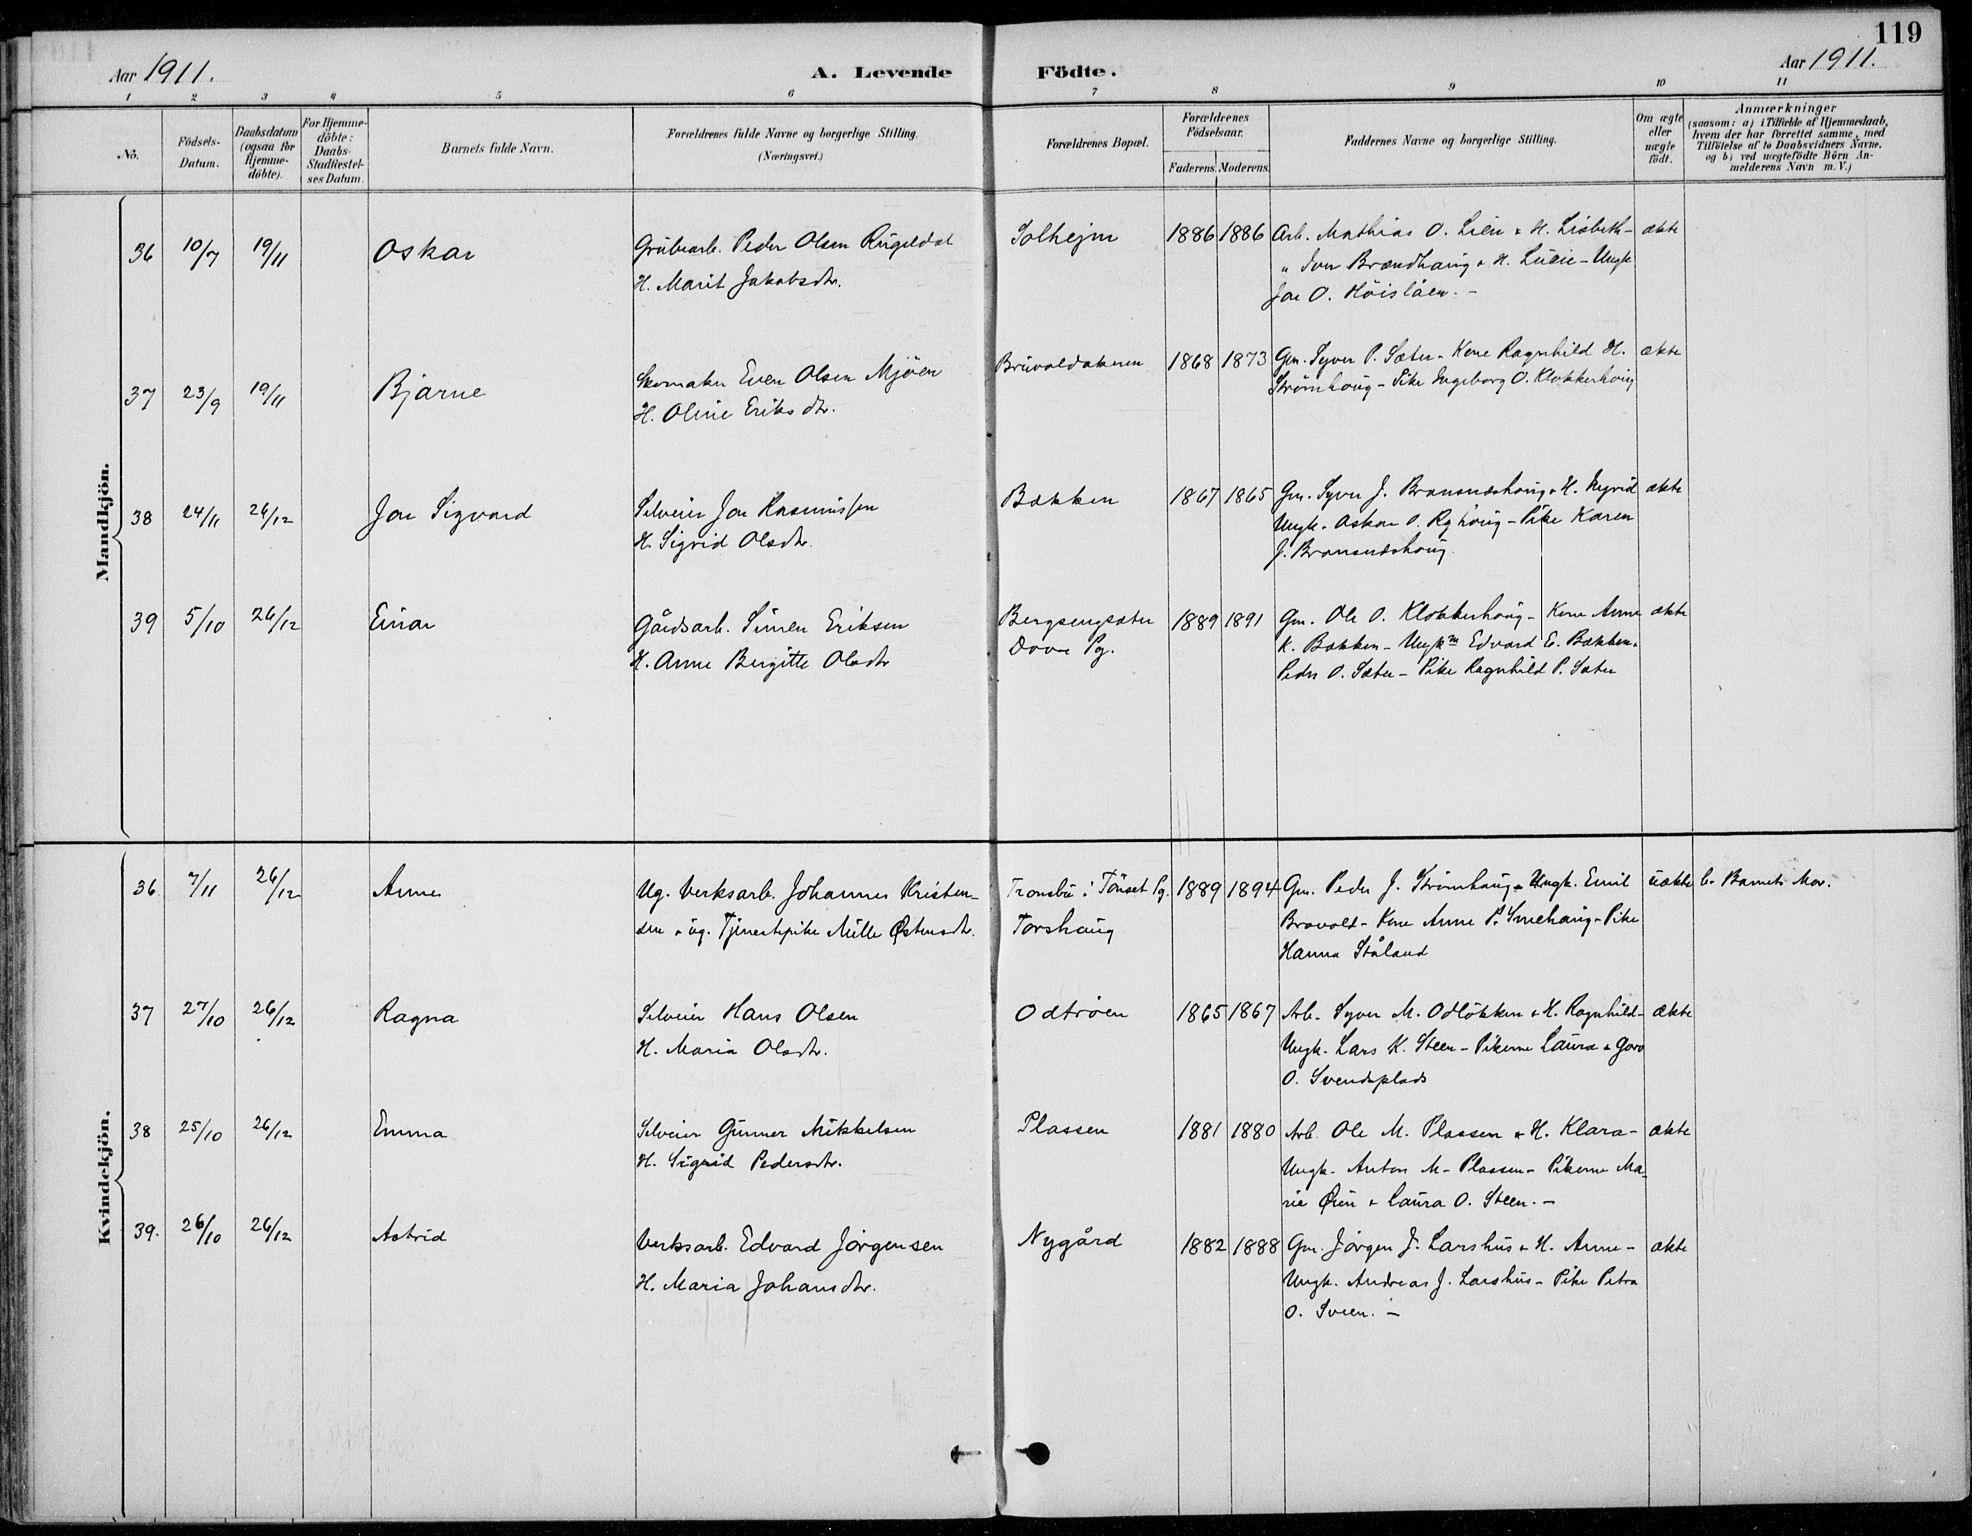 119
Aar 1911.
A. Levende Födte.
Aar 1911.
1 2 3 4 5 6 7 8 9 10 11
No.
Födsels-
Datum.
Daabsdatum
(ogsaa for
Hjemme-
döbte).
For Hjemme-
döbte:
Daabs-
Stadfestel-
ses Datum.
Barnets fulde Navn.
Forældrenes fulde Navne og borgerlige Stilling.
(Næringsvei.)
Forældrenes Bopæl.
Forældrenes
Födselsaar.
Faderens. Moderens.
Faddernes Navne og borgerlige Stilling.
Om ægte
eller
uægte
födt.
Anmærkninger
(saasom: a) i Tilfælde af Hjemmedaab,
hvem der har forrettet samme, med
Tilföielse af to Daabsvidners Navne.
og b) ved uægtefödte Börn An-
melderens Navn m. V.)
Mandkjön.
36 10/7 19/11 Oskar Grubearb. Peder Olsen Rugeldal Solhejm 1886 1886 Arb. Mathias O. Lien & H. Lisbeth- ækte
H. Marit Jakobsdtr. " Iver Brændhaug & H. Lucie - Ungk.
Jon O. Höislåen. -
37 23/9 19/11 Bjarne Skomaker Even Olsen Mjöen Bruvoldakeren 1868 1873 Gm. Syver P. Sæter - Kone Ragnhild H. ækte
H. Oline Eriksdtr. Strömhaug - Pike Ingeborg O. Klokkerhaug
38 24/11 26/12 Jon Sigvard Selveier Jon Rasmussen Bakken 1867 1865 Gm. Syver J. Bransneshaug & H. Ingrid ækte
H. Sigrid Olsdtr. Ungk. Oskar O. Ryhaug - Pike Karen
J. Bransneshaug.
39 5/10 26/12 Einar Gårdsarb. Simen Eriksen Bergsengsæter 1889 1891 Gm. Ole O. Klokkerhaug - Kone Anne ækte
H. Anne Bergitte Olsdtr Dovre Pg. K. Bakken - Ungkm Edvard E. Bakken.
Peder O. Sæter - Pike Ragnhild P. Sæter
Kvindekjön.
36 7/11 26/12 Anne Ug. Verksarb. Johannes Kristen- i Tönset Pg. 1889 1894 Gm. Peder J. Strömhaug - Ungk. Emil uækte b. Barnets Mor.
sen & ug. Tjenestepike Mille Østensdtr. Torshaug Brovold - Kone Anne P. Smehaug - Pike
Hanna Ståland
37 27/10 26/12 Ragna Selveier Hans Olsen Odtröen 1865 1867 Arb. Syver M. Odlökken & H. Ragnhild- Ækte
H. Maria Olsdtr. Ungk. Lars K. Steen - Pikerne Laura & Goro
O. Svendsplads
38 25/10 26/12 Emma Selveier Gunner Mikkelsen Plassen 1881 1880 Arb. Ole M. Plassen & H. Klara - ækte
H. Sigrid Pedersdtr. Ungk. Anton M. Plassen - Pikerne Ma-
rie Øien & Laura O. Steen. -
39. 26/10 26/12 Astrid Verksarb. Edvard Jörgensen Nygård 1882 1888 Gm. Jörgen J. Larshus & H. Anne - ækte
H. Maria Johansdtr. Ungk. Andreas J. Larshus - Pike Petra
O. Sveen. -